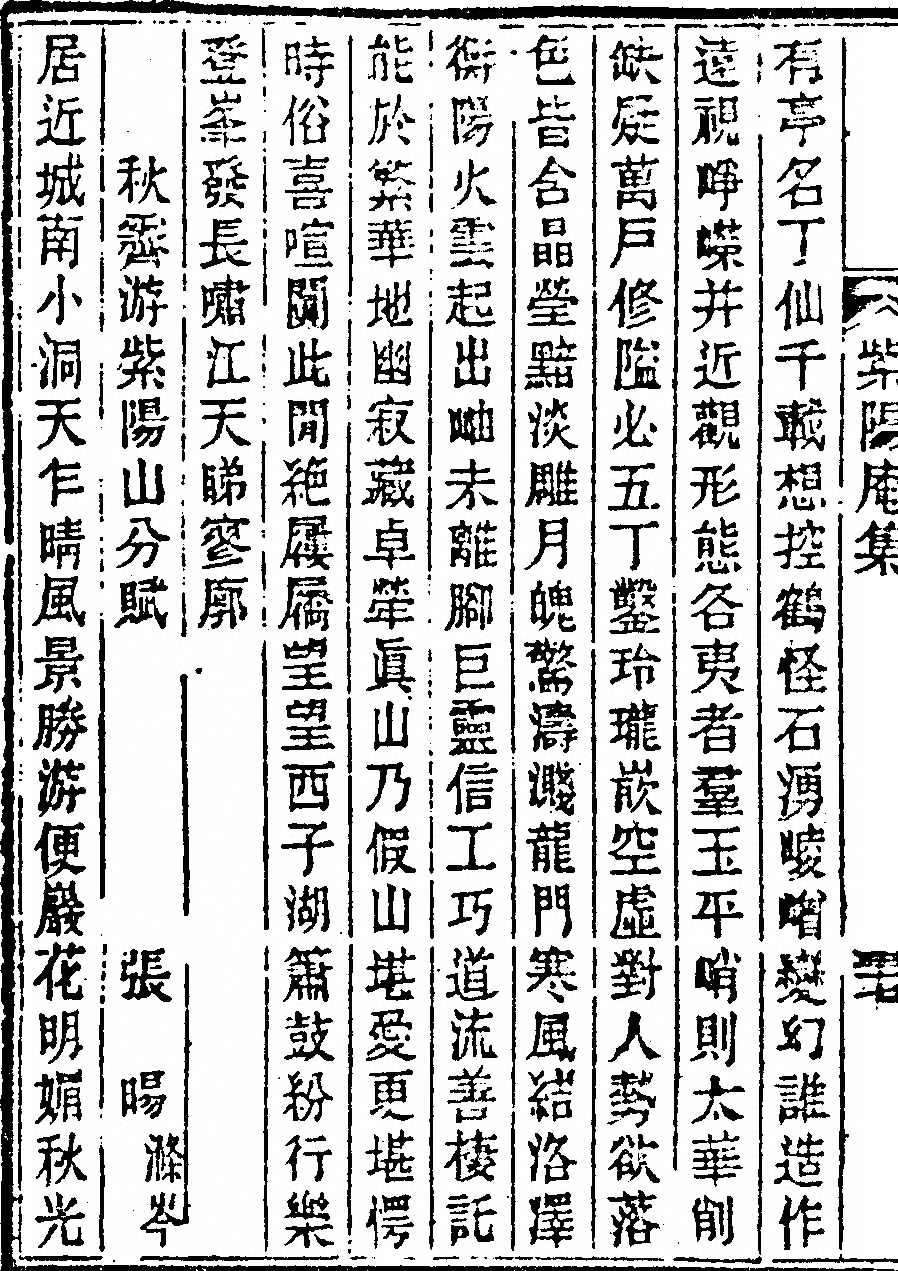 紫陽庵集
有亭名丁仙千載想控鶴怪石湧崚嶒變幻誰造作
遠視崢嶸并近觀形態各夷者羣玉平峭則太華削
缺疑萬戶修隘必五丁鑿玲瓏嵌空虛對人勢欲落
色皆含晶瑩黯淡雕月魄驚濤濺龍門寒風結洛澤
衡陽火雲起出岫未離腳巨靈信工巧道流善棲託
能於繁華地幽寂藏卓犖眞山乃假山堪愛更堪愕
時俗喜喧鬧此閒絶屨屩望望西子湖簫鼓紛行樂
登峯發長嘯江天睇寥廓
秋霽游紫陽山分賦 張 暘 滌岑
居近城南小洞天乍晴風景勝游便巖花明媚秋光